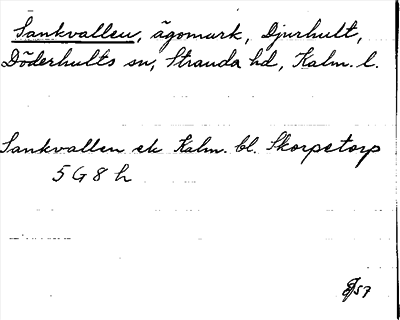 Sankvallen, ägomark, Djurhult,
Döderhults sn, Stranda hd, Kalm. l.
Sankvallen ek Kalm. bl. Skorpetorp
5 G 8 h